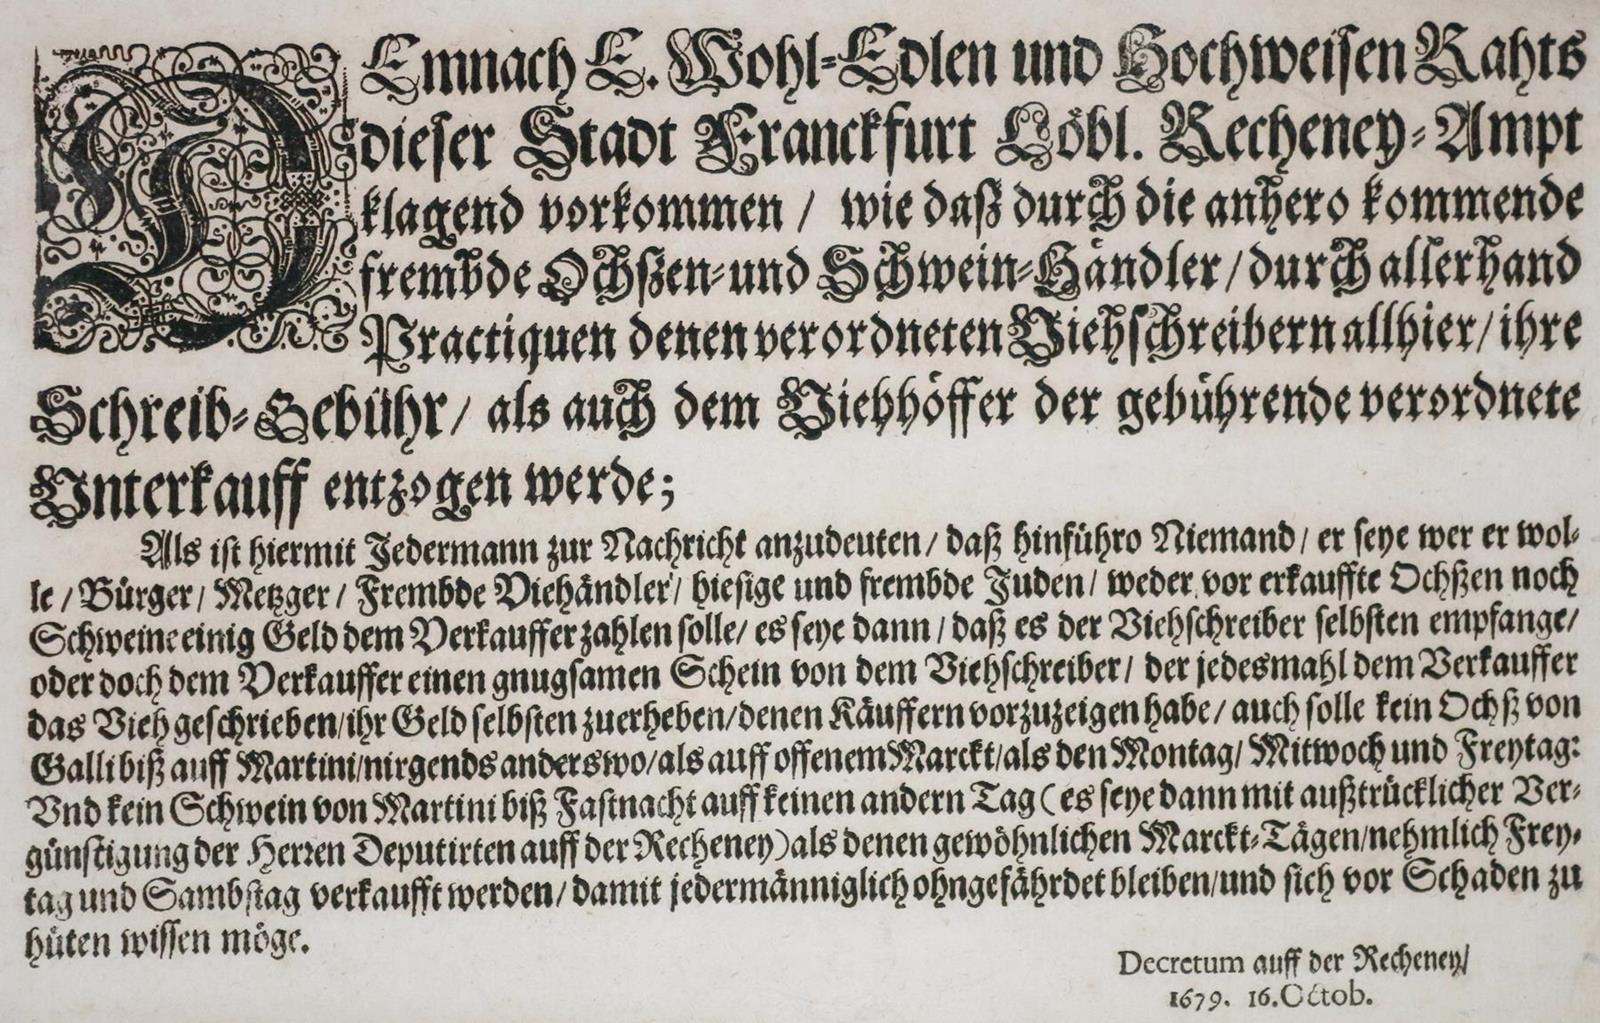 DEmnach E. Wohl-Edlen und Hochweisen Rahts
dieser Stadt Franckfurt Löbl. Recheney-Ampt
klagend vorkommen / wie daß durch die anhero kommende
frembde Ochßen- und Schwein-Händler / durch allerhand
Practiquen denen verordneten Viehschreibern allhier / ihre
Schreib-Gebühr / als auch dem Viehhöffer der gebührende verordnete
Unterkauff entzogen werde;
Als ist hiermit Jedermann zur Nachricht anzudeuten / daß hinführo Niemand / er seye wer er wol-
le / Bürger / Metzger / Frembde Viehändler / hiesige und frembde Juden / weder vor erkauffte Ochßen noch
Schweine einig Geld dem Verkauffer zahlen solle / es seye dann / daß es der Viehschreiber selbsten empfange /
oder doch dem Verkauffer einen gnugsamen Schein von dem Viehschreiber / der jedesmahl dem Verkauffer
das Vieh geschrieben / ihr Geld selbsten zuerheben / denen Käuffern vorzuzeigen habe / auch solle kein Ochß von
Galli biß auff Martini / nirgends anderswo / als auff offenem Marckt / als den Montag / Mittwoch und Freytag:
Vnd kein Schwein von Martini biß Fastnacht auff keinen andern Tag (es seye dann mit außtrücklicher Ver-
günstigung der Herren Deputirten auff der Recheney) als denen gewöhnlichen Marckt-Tägen / nehmlich Frey-
tag und Sambstag verkaufft werden / damit jedermänniglich ohngefährdet bleiben / und sich vor Schaden zu
hüten wissen möge.
Decretum auff der Recheney /
1679. 16. Octob.